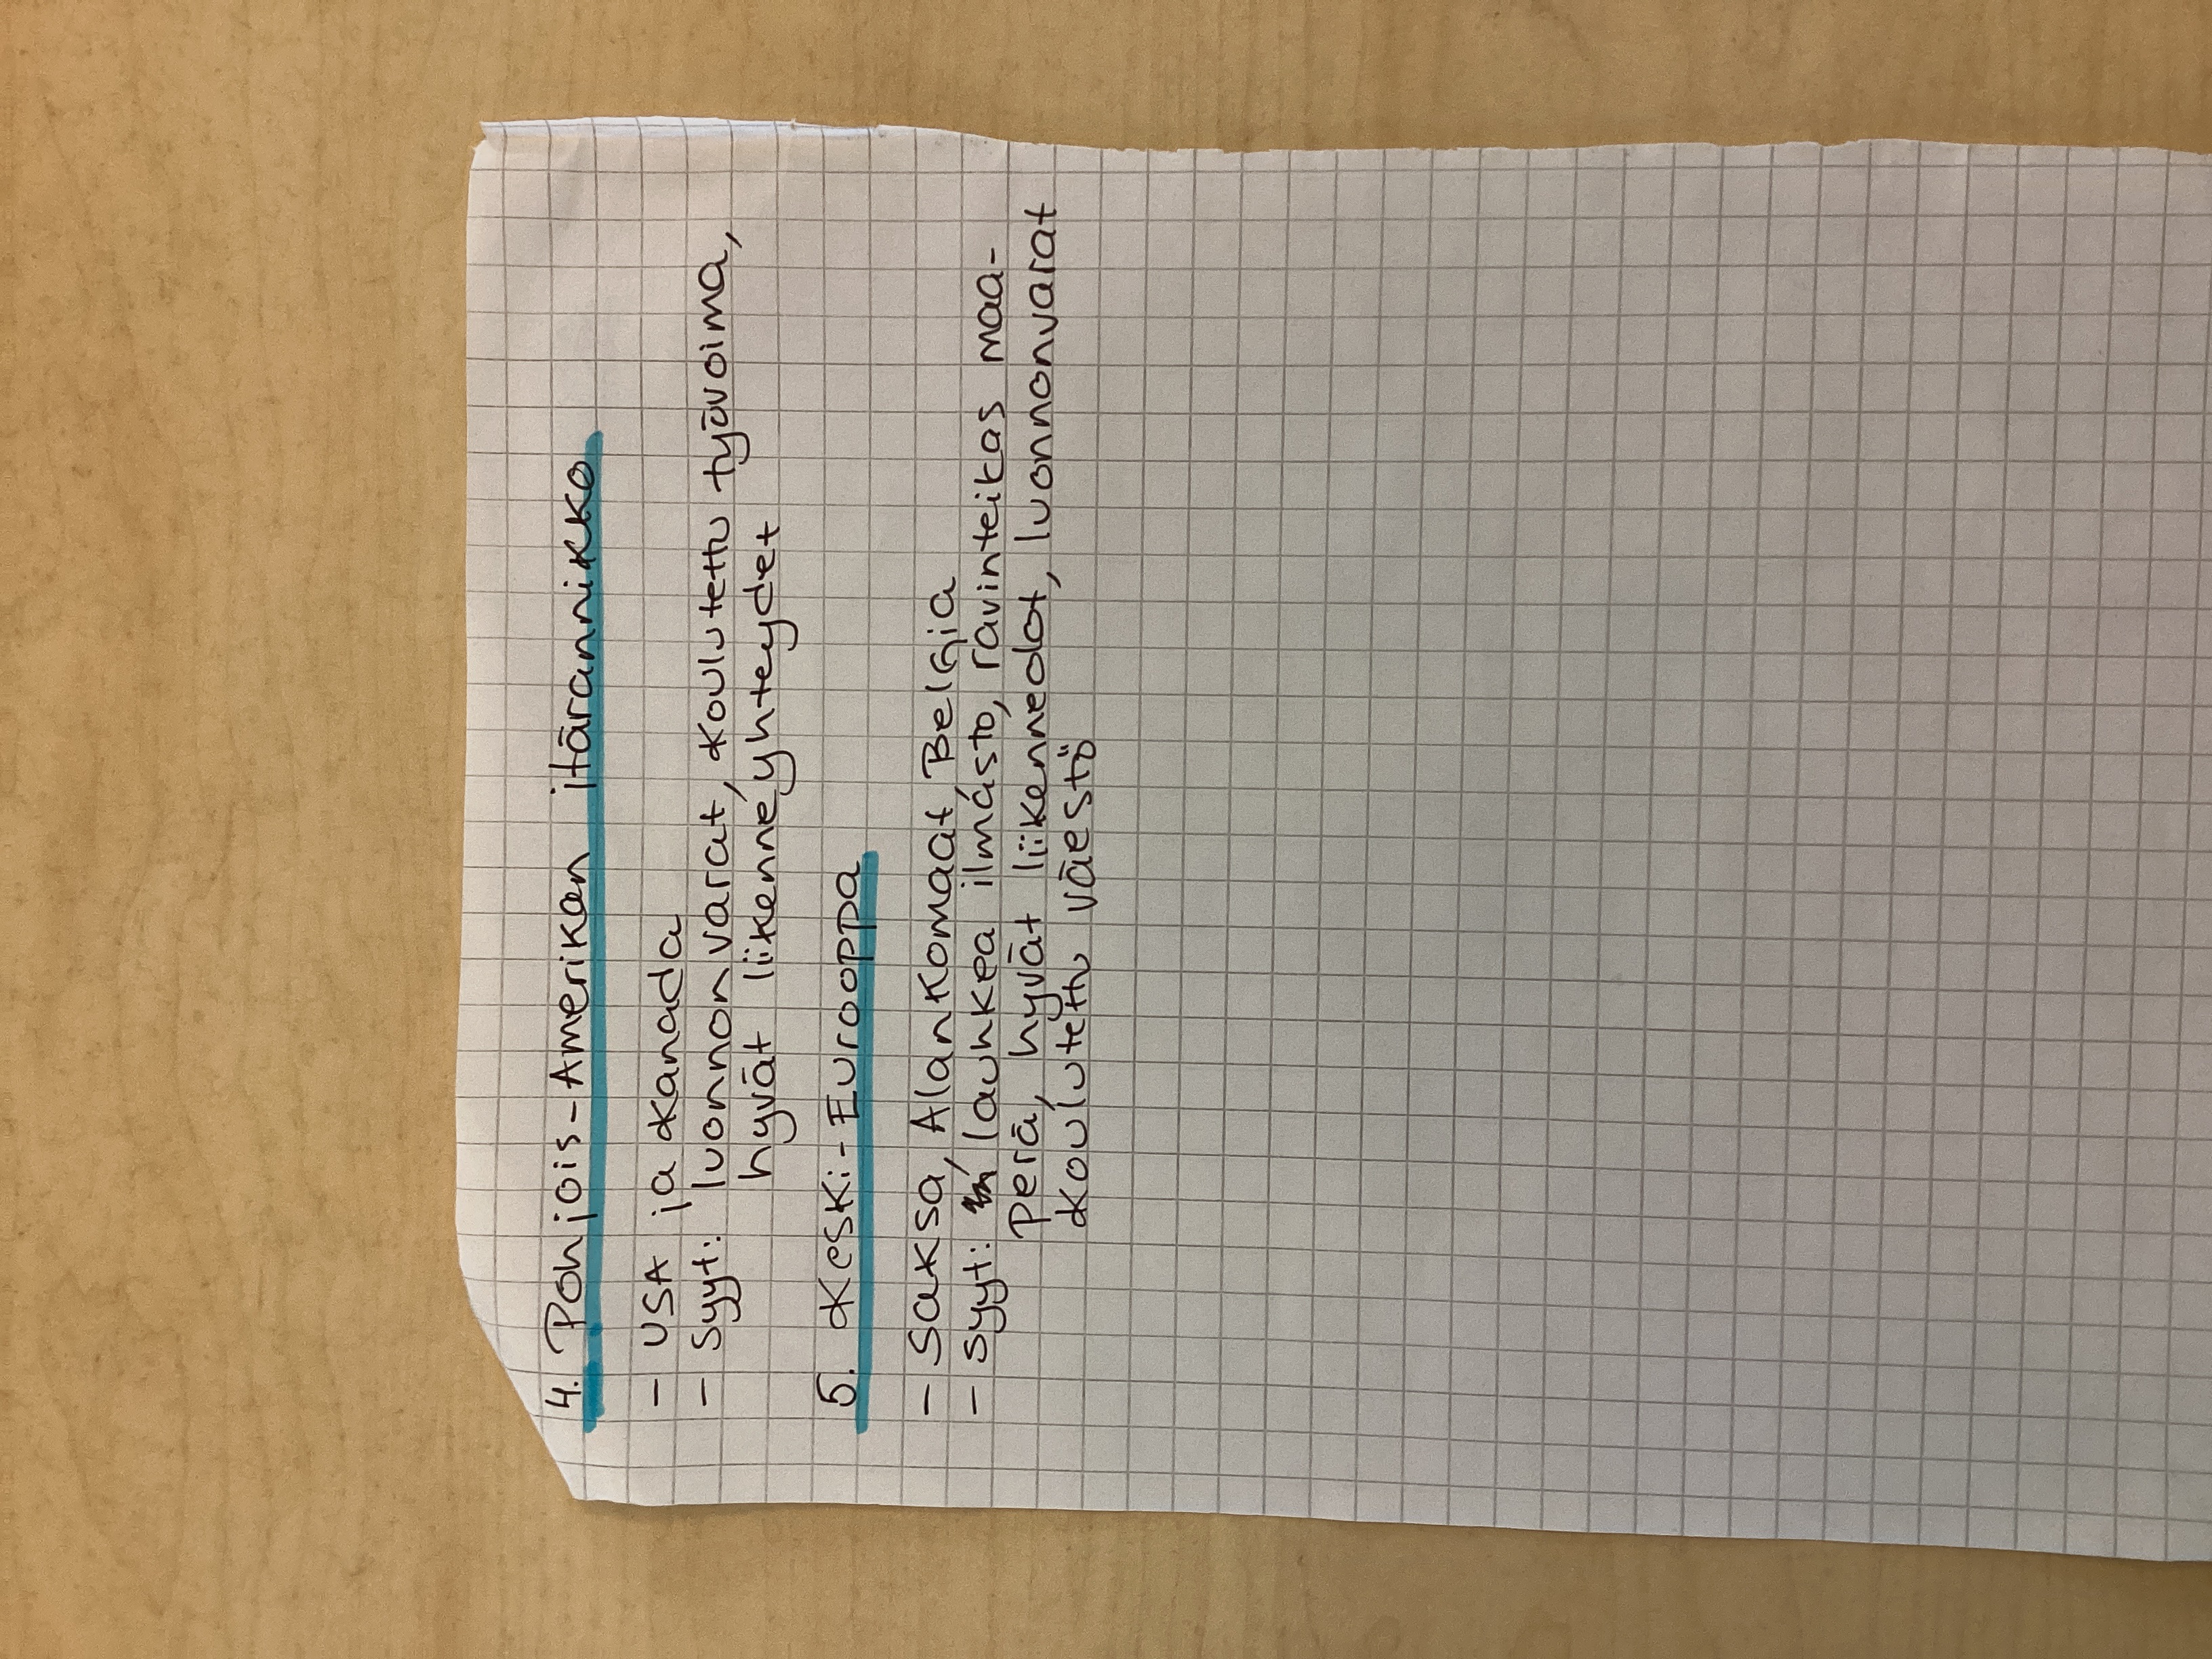 4. Pohjois-Amerikan itärannikko
- USA ja Kanada
- Syyt: luonnonvarat, koulutettu työvoima,
hyvät liikenneyhteydet
5. Keski-Eurooppa
- Saksa, Alankomaat, Belgia
- syyt: lauhkea ilmasto, ravinteikas maa-
perä, hyvät liikenneolot, luonnonvarat
koulutettu väestö